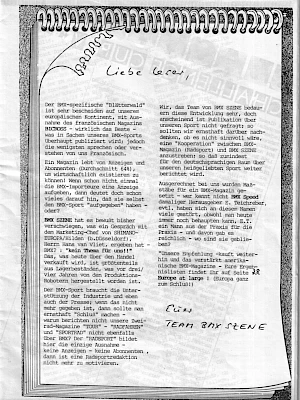 Liebe Leser,
Der BMX-spezifische "Blätterwald"
ist sehr bescheiden auf unseren
europäischen Kontinent, mit Aus-
nahme des französischen Magazins
BICROSS - wirklich das Beste -
was in Sachen unseres BMX-Sports
überhaupt publiziert wird; jedoch
die wenigsten sprechen oder ver-
stehen von uns Französisch.
Ein Magazin lebt von Anzeigen und
Abonnenten (Durchschnitt 64%), um
wirtschaftlich existieren zu
können! Wenn schon nicht einmal
die BMX-Importeure eine Anzeige
aufgeben, dann deutet doch schon
vieles darauf hin, daß sie selbst
den BMX-Sport "aufgegeben" haben -
oder?
BMX SZENE hat es bewußt bisher
verschwiegen, was ein Gespräch mit
dem Marketing-Chef von SHIMANO-
EUROPA/Vilex (n.Düsseldorf),
Herrn Hans van Vliet, ergeben hat
- BMX: "kein Thema für uns"!
Das, was heute über den Handel
verkauft wird, ist größtenteils
aus Lagerbeständen, was vor drei-
vier Jahren von den Produktions-
Robotern hergestellt worden ist.
Der BMX-Sport braucht die Unter-
stützung der Industrie und eben
auch der Presse; wenn das nicht
mehr gegeben ist, dann sollte man
ernsthaft "Schluß" machen -
warum berichten nicht unsere Zwei-
rad-Magazine "TOUR" - "RADFAHREN"
und "SPORTRAD" nicht ebenfalls
über BMX? Der "RADSPORT" bildet
hier die einzige Ausnahme -
keine Anzeigen - keine Abonnenten,
dann ist eine Radsportredaktion
nicht mehr zu motivieren.
Wir, das Team von BMX SZENE bedau-
ern diese Entwicklung sehr, doch
anscheinend ist Publikation über
unseren Sport nicht gefragt; so
sollten wir ernsthaft darüber nach-
denken, ob es nicht sinnvoll wäre,
eine "Kooperation" zwischen BMX-
Magazin (Radsport) und BMX SZENE
anzustreben; so daß zumindest
für den deutschsprachigen Raum über
unseren heißgeliebten Sport weiter
berichtet wird.
Ausgerechnet bei uns wurden Maß-
stäbe für ein BMX-Magazin ge-
setzt - wer kennt nicht BMX Speed
damaliger Herausgeber E. Teichräber,
evtl. haben sich an diesem Namen
viele gestört, obwohl man heute
immer noch behaupten kann, E.T.
ein Mann aus der Praxis für die
Praxis - und davon gab es
reichlich - wo sind sie geblie-
ben?
"Unsere Empfehlung -kauft weiter-
hin und das verstärkt amerika-
nische BMX-Magazine - Eure Ergeb-
nislisten findet Ihr auf Seite 28
Europe at large! (Europa ganz
zum Schluß!)
Für
TEAM BMX SZENE